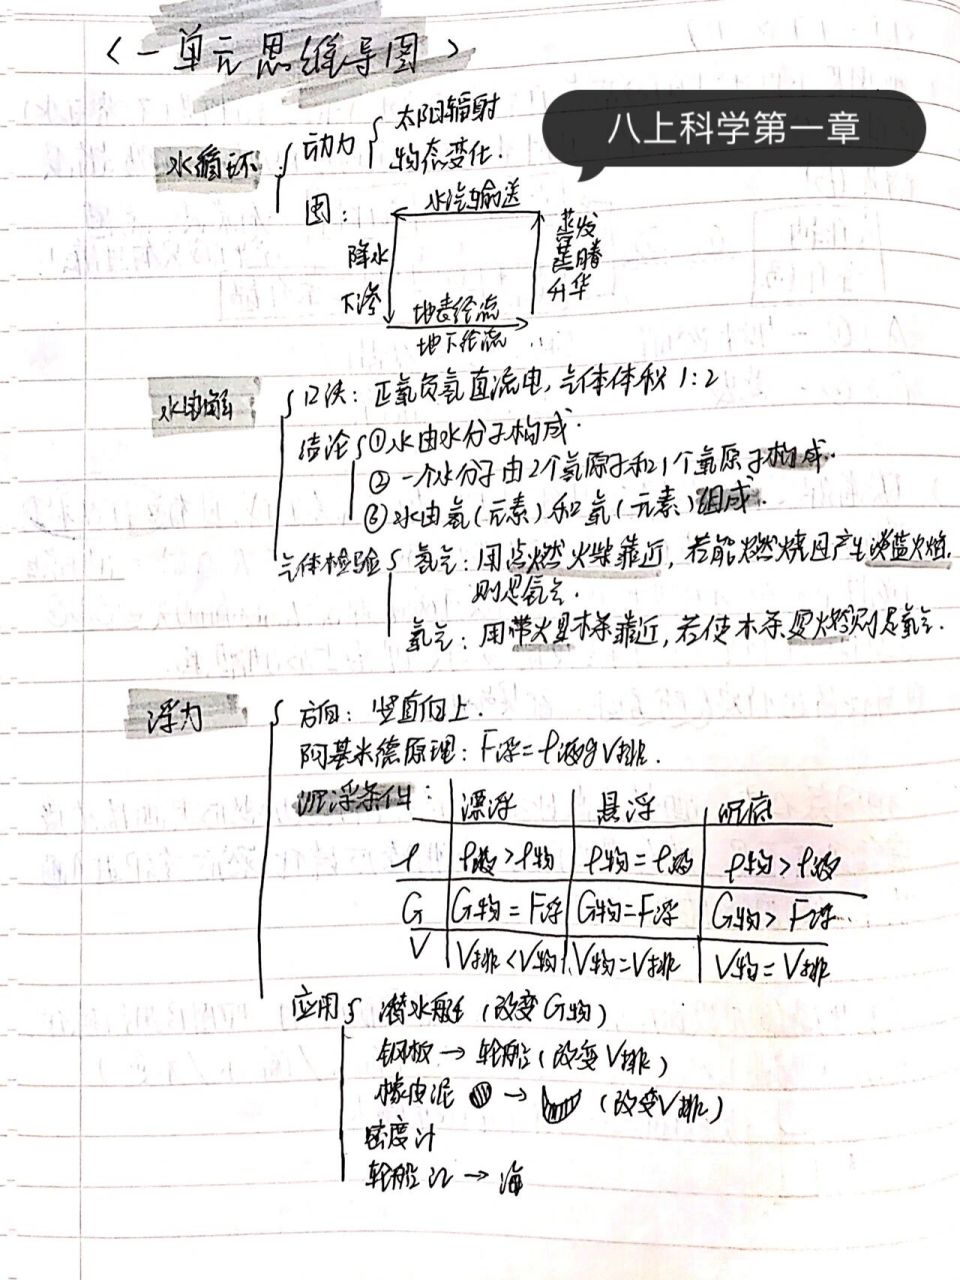 〈一单元思维导图〉
八上科学第一章
水循环 { 动力 { 太阳辐射
物态变化.
图:
水汽输送
降水
下渗
蒸发
蒸腾
升华
地表径流
地下径流
水电解
口诀: 正氧负氢直流电, 气体体积 1:2
结论 { ①水由水分子构成.
② 一个水分子由2个氢原子和1个氧原子构成.
③水由氢(元素)和氧(元素)组成.
气体检验 { 氢气: 用点燃火柴靠近, 若能燃烧且产生淡蓝火焰,
则是氢气.
氧气: 用带火星木条靠近, 若使木条复燃则是氧气.
浮力
方向: 竖直向上.
阿基米德原理: F浮=ρ液gV排.
沉浮条件: 漂浮 悬浮 沉底
ρ ρ液>ρ物 ρ物=ρ液 ρ物>ρ液
G G物=F浮 G物=F浮 G物>F浮
V V排<V物 V物=V排 V物=V排
应用 { 潜水艇 (改变G物)
钢板→轮船 (改变V排)
橡皮泥 → (改变V排)
密度计
轮船江→海